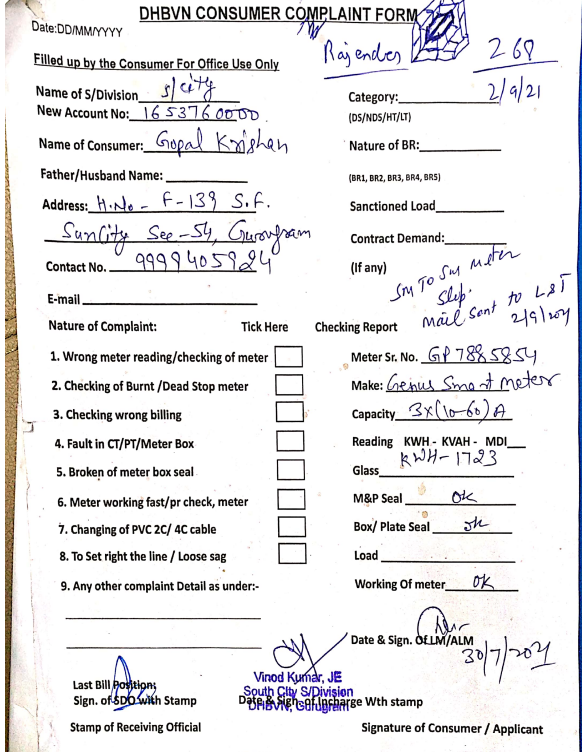 DHBVN CONSUMER COMPLAINT FORM
Date:DD/MM/YYYY
Rajender
268
2/9/21
Filled up by the Consumer For Office Use Only
Name of S/Division S/City
Category:
New Account No: 1653760000
(DS/NDS/HT/LT)
Name of Consumer: Gopal Krishan
Nature of BR:
Father/Husband Name:
(BR1, BR2, BR3, BR4, BR5)
Address: H.No - F-139 S.F.
Sanctioned Load
SunCity Sec-54, Gurugram
Contract Demand:
Contact No. 9999405924
(If any)
SM To SM meter
Slip.
mail sent to L&T
2/9/2021
E-mail
Nature of Complaint: Tick Here Checking Report
1. Wrong meter reading/checking of meter
Meter Sr. No. GP7885854
2. Checking of Burnt /Dead Stop meter
Make: Genus Smart meter
3. Checking wrong billing
Capacity 3x(10-60)A
4. Fault in CT/PT/Meter Box
Reading KWH - KVAH - MDI
KWH-1723
5. Broken of meter box seal
Glass
6. Meter working fast/pr check, meter
M&P Seal OK
7. Changing of PVC 2C/ 4C cable
Box/ Plate Seal OK
8. To Set right the line / Loose sag
Load
9. Any other complaint Detail as under:-
Working Of meter OK
Date & Sign. Of LM/ALM
30/7/2021
Last Bill Position:
Vinod Kumar, JE
South City S/Division
DHBVN, Gurugram
Sign. of SDO with Stamp
Date & Sign. of Incharge Wth stamp
Stamp of Receiving Official
Signature of Consumer / Applicant